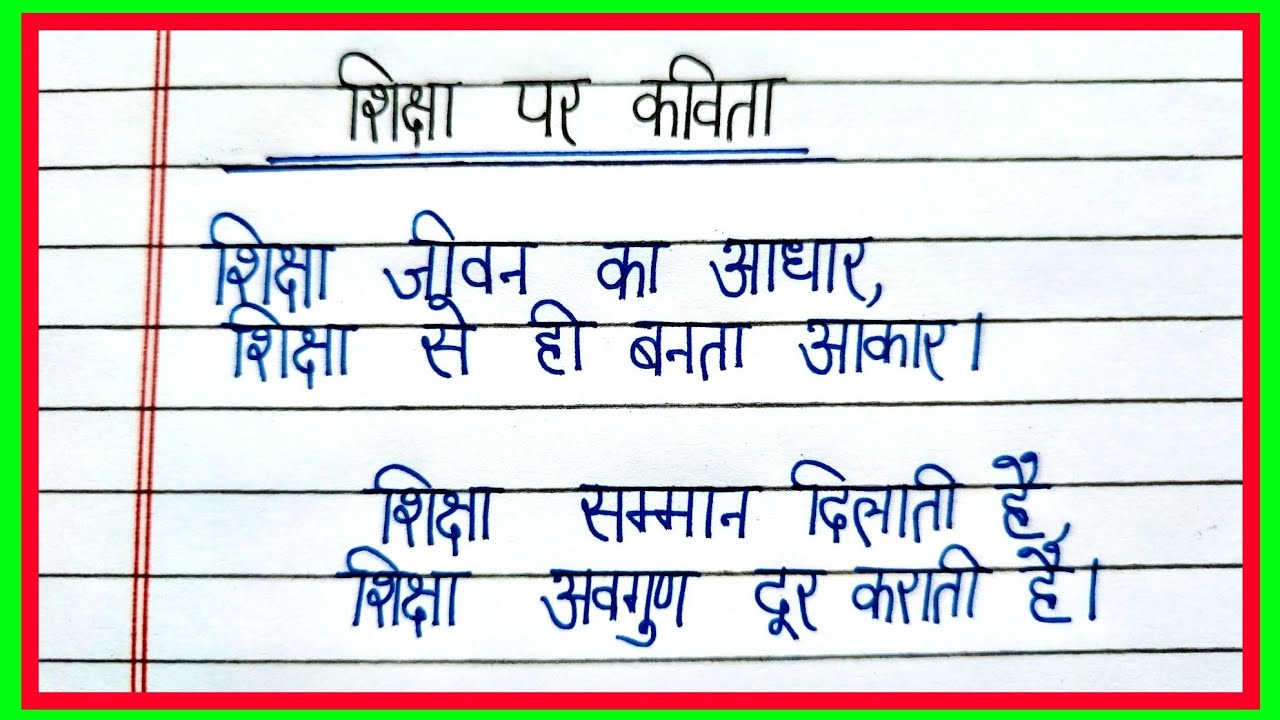 शिक्षा पर कविता
शिक्षा जीवन का आधार,
शिक्षा से ही बनता आकार।
शिक्षा सम्मान दिलाती है,
शिक्षा अवगुण दूर कराती है।